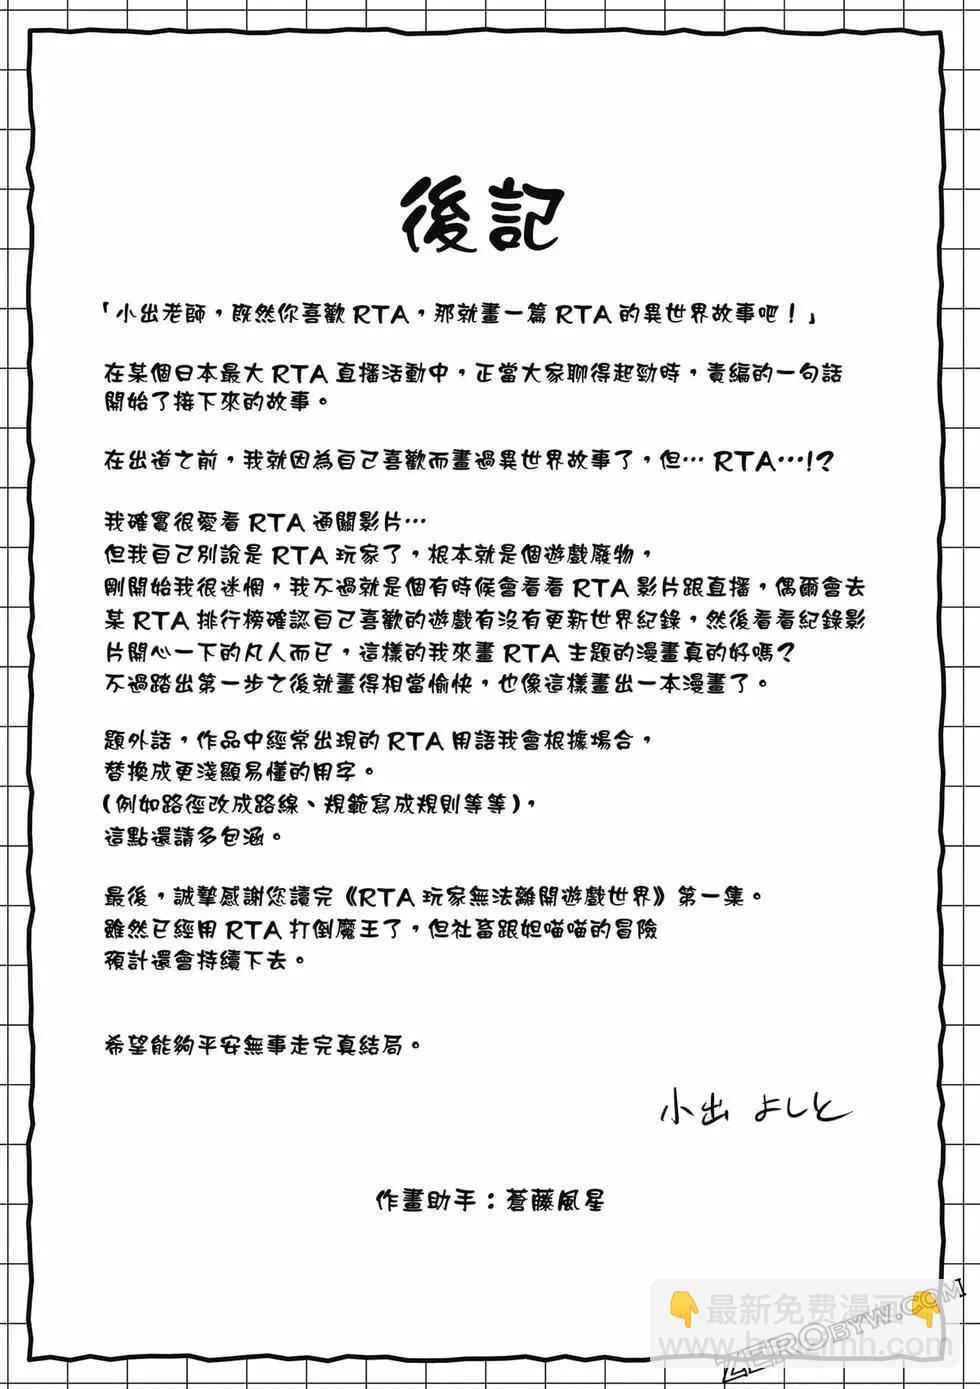 後記
「小出老師，既然你喜歡RTA，那就畫一篇RTA的異世界故事吧！」
在某個日本最大RTA直播活動中，正當大家聊得起勁時，責編的一句話
開始了接下來的故事。
在出道之前，我就因為自己喜歡而畫過異世界故事了，但…RTA…!?
我確實很愛看RTA通關影片…
但我自己別說是RTA玩家了，根本就是個遊戲廢物，
剛開始我很迷惘，我不過就是個有時候會看看RTA影片跟直播，偶爾會去
某RTA排行榜確認自己喜歡的遊戲有沒有更新世界紀錄，然後看看紀錄影
片開心一下的凡人而已，這樣的我來畫RTA主題的漫畫真的好嗎？
不過踏出第一步之後就畫得相當愉快，也像這樣畫出一本漫畫了。
題外話，作品中經常出現的RTA用語我會根據場合，
替換成更淺顯易懂的用字。
(例如路徑改成路線、規範寫成規則等等)，
這點還請多包涵。
最後，誠摯感謝您讀完《RTA玩家無法離開遊戲世界》第一集。
雖然已經用RTA打倒魔王了，但社畜跟妲喵喵的冒險
預計還會持續下去。
希望能夠平安無事走完真結局。
小出 よしと
作畫助手：蒼藤風星
👇最新免费漫画👇
ZEROBYW.COM